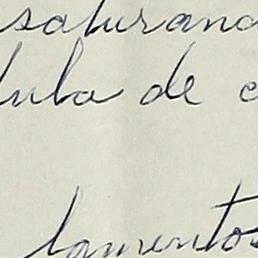 saturand
tuba de c
lamentos